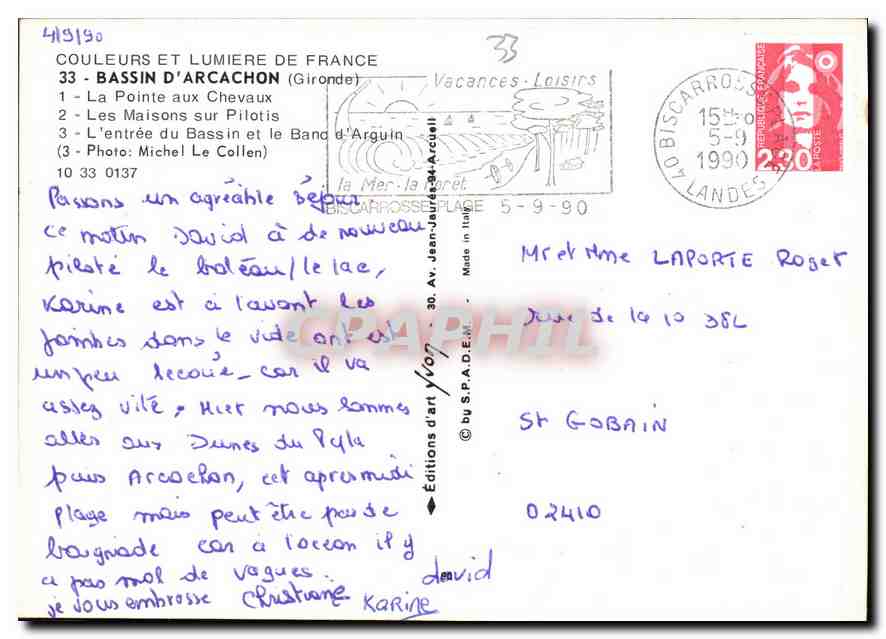 4/9/90
33
COULEURS ET LUMIERE DE FRANCE
33 - BASSIN D'ARCACHON (Gironde)
1 - La Pointe aux Chevaux
2 - Les Maisons sur Pilotis
3 - L'entrée du Bassin et le Banc d'Arguin
(3 - Photo: Michel Le Collen)
10 33 0137
Vacances - Loisirs
la Mer - la Foret
BISCARROSSE PLAGE 5-9-90
40 BISCARROSSE
15H
5-9
1990
LANDES
REPUBLIQUE FRANÇAISE
2,30
LA POSTE
Passons un agréable séjour.
ce matin David à de nouveau
piloté le batéau/le lac,
Karine est à l'avant les
jambes dans le vide ont est
un peu secoué - car il va
assez vite, Hier nous sommes
allés aux Dunes du Pyla
puis Arcachon, cet apres midi
plage mais peut être pas de
baignade car à l'océan il y
a pas mal de vagues.
je vous embrasse Christiane
Karine
david
Editions d'art Yvon - 30, Av. Jean-Jaurès-94-Arcueil
© by S.P.A.D.E.M. - Made in Italy
CPAPHIL
Mr et Mme LAPORTE Roger
Rue de la 10 38L
St GOBAIN
02410